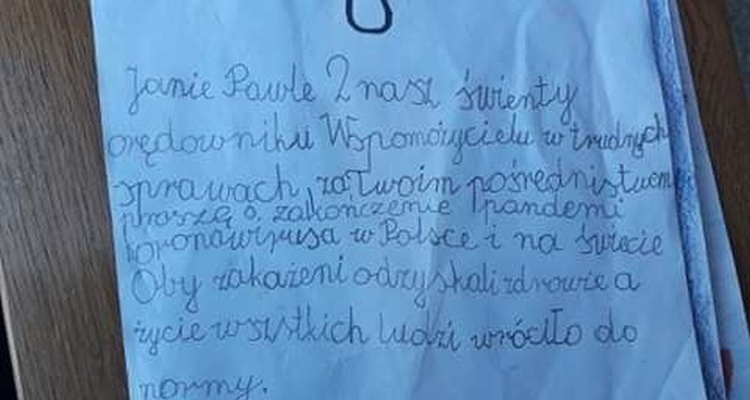 Janie Pawle 2 nasz świenty
orędowniku Wspomożycielu w trudnych
sprawach, za Twoim pośrednistwem
proszę o zakończenie pandemi
koronawirusa w Polsce i na świecie
Oby zakażeni odzyskali zdrowie a
życie wsistkich ludzi wróciło do
normy.